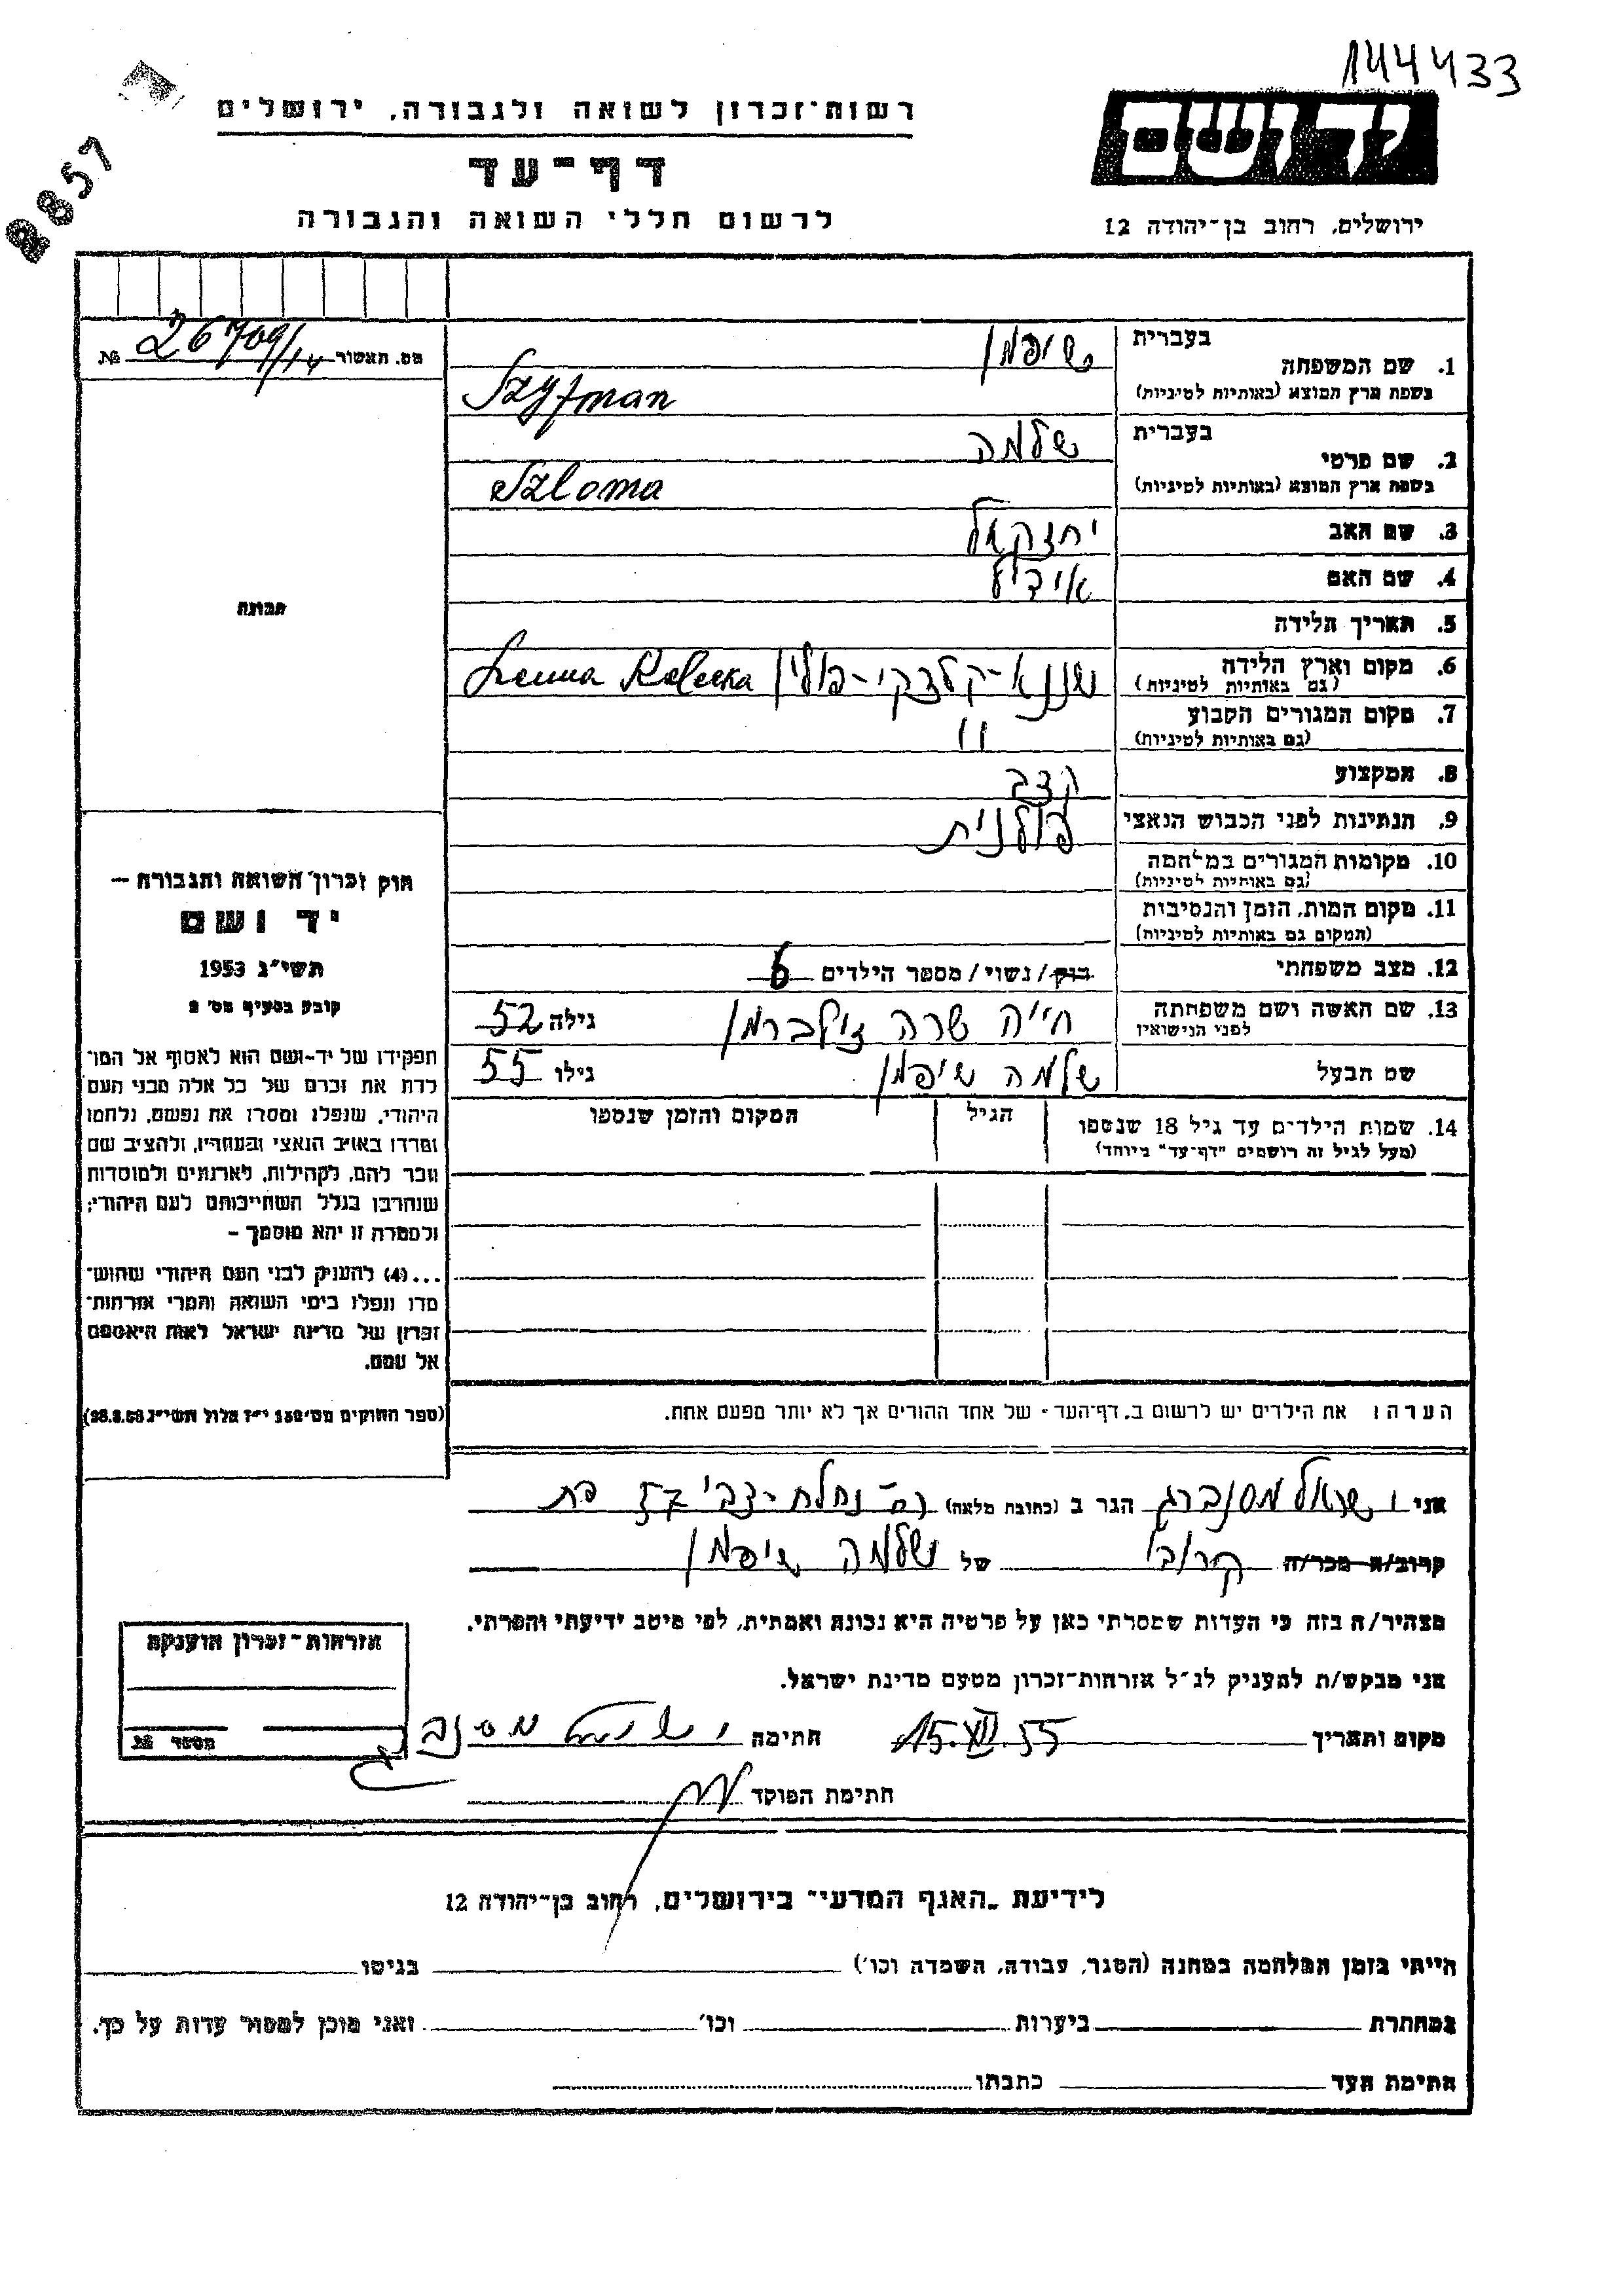 144433
8857
רשות־זכרון לשואה ולגבורה, ירושלים
ידושם
דף־עד
לרשום חללי השואה והגבורה
ירושלים, רחוב בן־יהודה 12
מס. האשור № 26709/14
1. שם המשפחה בעברית שיפמן
בשפת ארץ המוצא (באותיות לטיניות) Szyfman
2. שם פרטי בעברית שלמה
בשפת ארץ המוצא (באותיות לטיניות) Szloma
3. שם האב יחזקאל
4. שם האם
תמונה
5. תאריך הלידה
6. מקום וארץ הלידה
(גם באותיות לטיניות)
7. מקום המגורים הקבוע "
(גם באותיות לטיניות)
8. המקצוע קצב
9. הנתינות לפני הכבוש הנאצי פולנית
10. מקומות המגורים במלחמה
(גם באותיות לטיניות)
11. מקום המות, הזמן והנסיבות
(המקום גם באותיות לטיניות)
12. מצב משפחתי רווק/נשוי/מספר הילדים 6
13. שם האשה ושם משפחתה לפני הנישואין חייה שרה זילברמן גילה 52
שם הבעל שלמה שיפמן גילו 55
14. שמות הילדים עד גיל 18 שנספו הגיל המקום והזמן שנספו
(מעל לגיל זה רושמים "דף־עד" ביוחד)
חוק זכרון השואה והגבורה —
יד ושם
תשי"ג 1953
קובע בסעיף מס' 2
תפקידו של יד-ושם הוא לאסוף אל המו־
לדת את זכרם של כל אלה מבני העם
היהודי, שנפלו ומסרו את נפשם, נלחמו
ומרדו באויב הנאצי ובעוזריו, ולהציב שם
וזכר להם, לקהילות, לארגונים ולמוסדות
שנחרבו בגלל השתייכותם לעם היהודי;
ולמטרה זו יהא מוסמך —
...(4) להעניק לבני העם היהודי שהוש־
מדו ונפלו בימי השואה והמרי אזרחות־
זכרון של מדינת ישראל לאות היאספם
אל עמם.
(ספר החוקים מס' 132 י"ז אלול תשי"ג 28.8.53)
הערה: את הילדים יש לרשום ב"דף־העד" של אחד ההורים אך לא יותר מפעם אחת.
אני ישראל מסנברג הגר ב (כתובת מלאה)
קרוב/ה מכר/ה קרובי של שלמה שיפמן
מצהיר/ה בזה כי העדות שמסרתי כאן על פרטיה היא נכונה ואמתית, לפי מיטב ידיעתי והכרתי.
אני מבקש/ת להעניק לנ"ל אזרחות־זכרון מטעם מדינת ישראל.
מקום ותאריך 15.XII.55 חתימה
חתימת הפוקד
אזרחות־זכרון הוענקה
מספר №
לידיעת "האגף המדעי" בירושלים, רחוב בן־יהודה 12
הייתי בזמן המלחמה במחנה (הסגר, עבודה, השמדה וכו') בגיטו
במחתרת ביערות וכו' ואני מוכן למסור עדות על כך.
חתימת העד כתבתו